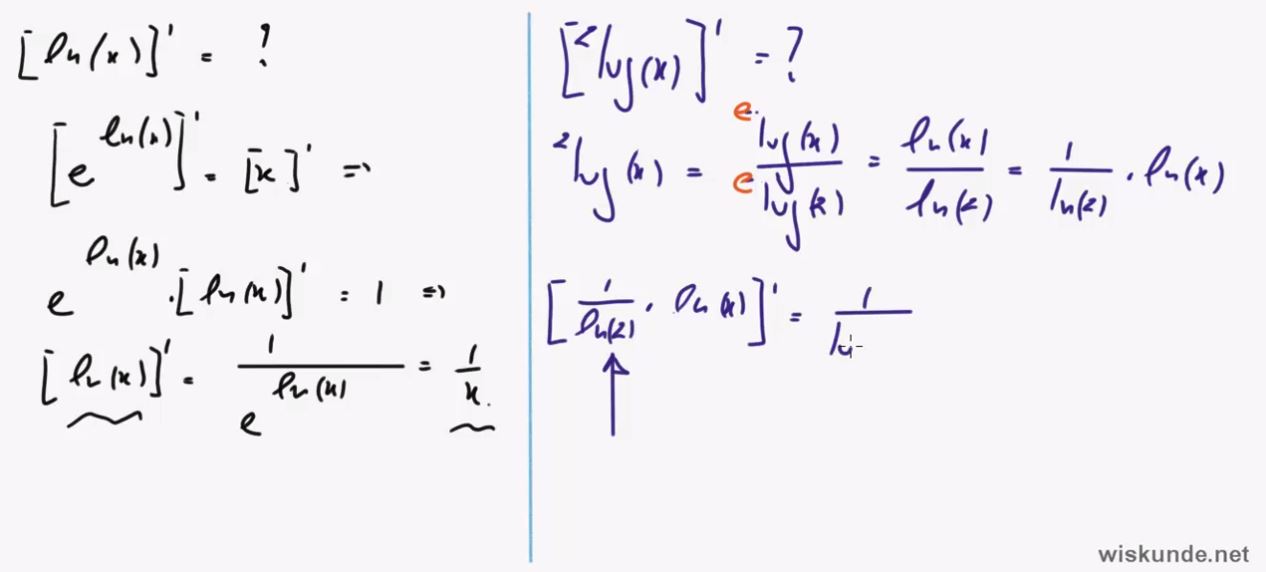 [ln(x)]' = ?
[e^ln(x)]' = [x]' =>
e^ln(x) · [ln(x)]' = 1 =>
[ln(x)]' = 1/e^ln(x) = 1/x
[²log(x)]' = ?
²log(x) = ᵉlog(x)/ᵉlog(2) = ln(x)/ln(2) = 1/ln(2) · ln(x)
[1/ln(2) · ln(x)]' = 1/
wiskunde.net